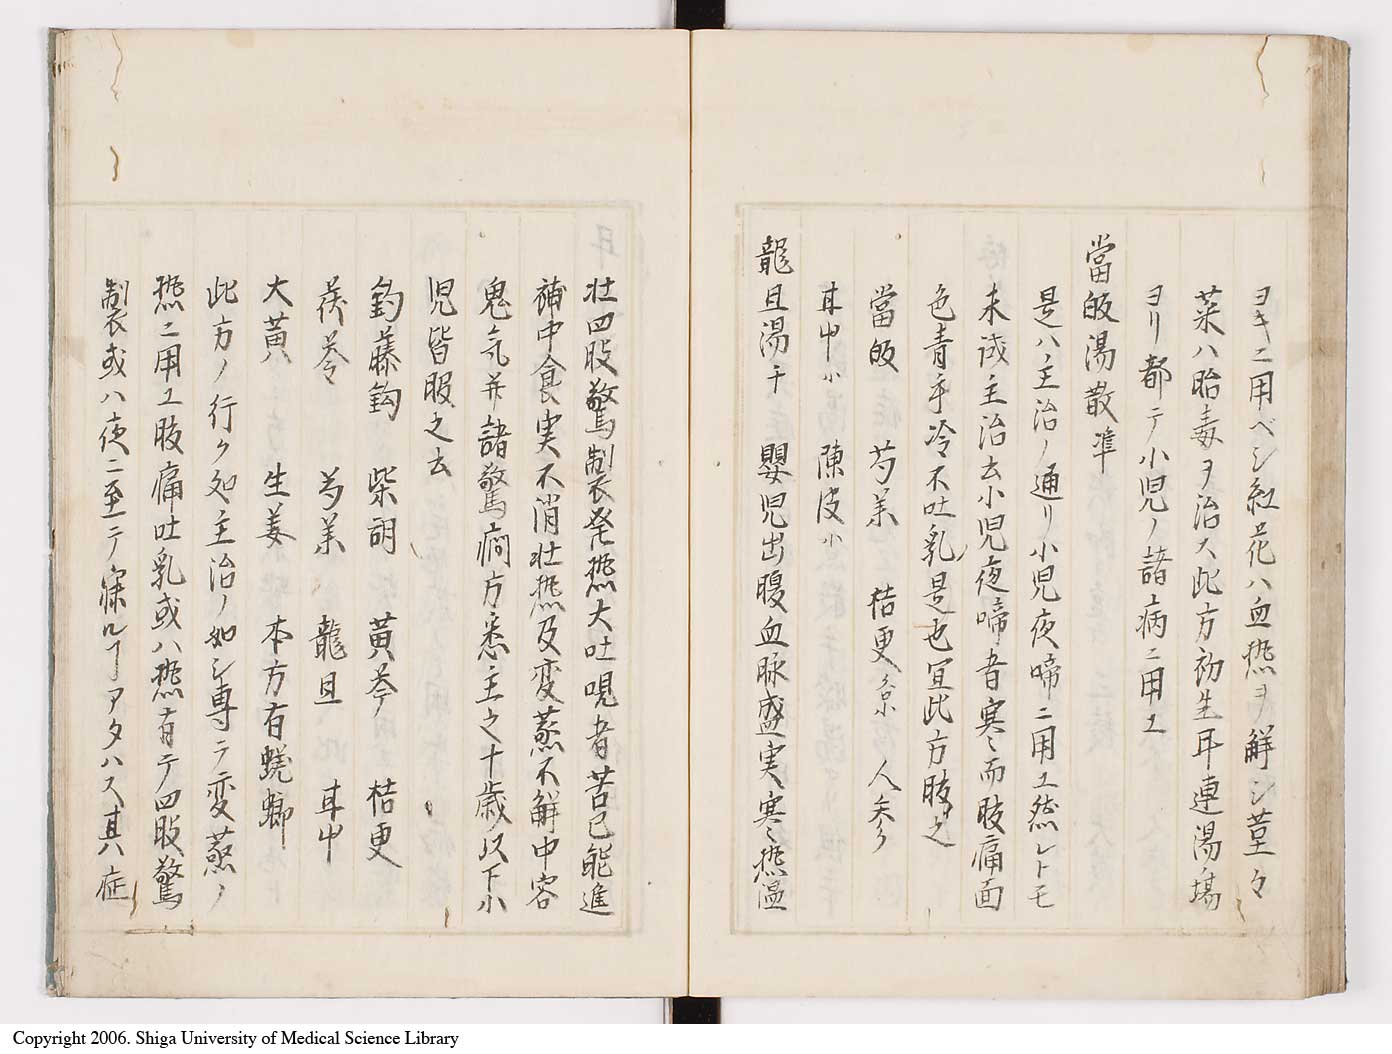 ヨキニ用ベシ紅花ハ血熱ヲ解シ茎々
菜ハ胎毒ヲ治ス此方初生耳連湯ノ塲
ヨリ都テ小児ノ諸病ニ用ユ
當皈湯散準
是ハ主治ノ通リ小児夜啼ニ用ユ然レトモ
未試主治云小児夜啼者寒々而肢痛面
色青手冷不吐乳是也宜此方肢之
當皈 芍薬 桔更 人参
甘中小 陳皮小
龍旦湯千 嬰児出腹血脉盛実寒々熱温
壮四肢驚掣発熱大吐哯者苦已能進
哺中食実不消壮熱及変蒸不解中客
鬼気并諸驚癇方悉主之十歳以下小
児皆服之云
釣藤鈎 柴胡 黄芩 桔更
茯苓 芍薬 龍旦 甘中
大黄 生姜 本方有蜣螂
此方ノ行ク処主治ノ如シ専ラ変蒸ノ
熱ニ用ユ肢痛吐乳或ハ熱有テ四肢驚
掣或ハ夜ニ至テ寐ルヿアタハス其症
Copyright 2006. Shiga University of Medical Science Library